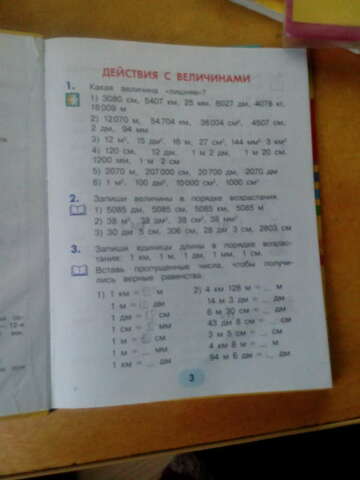 ДЕЙСТВИЯ С ВЕЛИЧИНАМИ
1. Какая величина «лишняя»?
1) 3080 см, 5407 км, 25 мм, 6027 дм, 4078 кг,
18 009 м
2) 12 070 м, 54 704 км, 36 004 см², 4507 см,
2 дм, 94 мм
3) 12 м², 15 дм², 16 м, 27 см², 144 мм², 3 км²
4) 120 см, 12 дм, 1 м 2 дм, 1 м 20 см,
1200 мм, 1 м 2 см
5) 2070 м, 207 000 см, 20 700 дм, 2070 дм
6) 1 м², 100 дм², 10 000 см², 1000 см²
2. Запиши величины в порядке возрастания.
1) 5085 дм, 5085 см, 5085 км, 5085 м
2) 38 м², 38 дм², 38 см², 38 мм²
3) 30 дм 5 см, 306 см, 28 дм 3 см, 2803 см
3. Запиши единицы длины в порядке возрас-
тания: 1 км, 1 м, 1 дм, 1 мм, 1 см.
Вставь пропущенные числа, чтобы получи-
лись верные равенства.
1) 1 км = м
1 м = дм
1 дм = см
1 см = мм
1 м = см
1 м = мм
1 км = дм
2) 4 км 128 м = м
14 м 3 дм = дм
6 м 30 см = см
43 дм 8 см = см
3 м 5 см = см
4 км 8 м = м
94 м 6 дм = дм
3